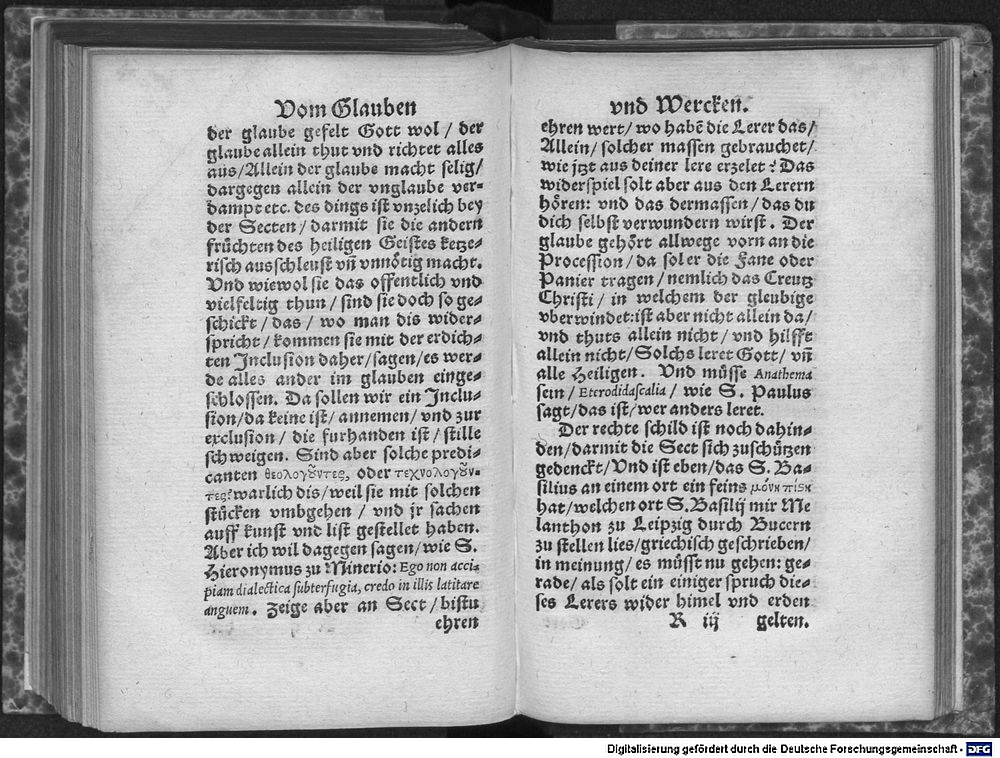 Vom Glauben
der glaube gefelt Gott wol / der
glaube allein thut vnd richtet alles
aus/Allein der glaube macht selig/
dargegen allein der vnglaube ver-
dampt etc. des dings ist vnzelich bey
der Secten / darmit sie die andern
früchten des heiligen Geistes ketze-
risch ausschleust vñ vnnötig macht.
Vnd wiewol sie das offentlich vnd
vielfeltig thun / sind sie doch so ge-
schickt / das / wo man dis wider-
spricht / kommen sie mit der erdich-
ten Inclusion daher/sagen/es wer-
de alles ander im glauben einge-
schlossen. Da sollen wir ein Inclu-
sion/da keine ist/ annemen/ vnd zur
exclusion / die furhanden ist / stille
schweigen. Sind aber solche predi-
canten θεολογοῦντες, oder τεχνολογοῦν-
τες? warlich dis/ weil sie mit solchen
stücken vmbgehen / vnd jr sachen
auff kunst vnd list gestellet haben.
Aber ich wil dagegen sagen/wie S.
Hieronymus zu Minerio: Ego non acci-
piam dialectica subterfugia, credo in illis latitare
anguem. Zeige aber an Sect / bistu
ehren
vnd Wercken.
ehren wert/ wo habẽ die Lerer das/
Allein/ solcher massen gebrauchet/
wie jtzt aus deiner lere erzelet? Das
widerspiel solt aber aus den Lerern
hören: vnd das dermassen / das du
dich selbst verwundern wirst. Der
glaube gehört allwege vorn an die
Procession / da sol er die Fane oder
Panier tragen / nemlich das Creutz
Christi / in welchem der gleubige
vberwindet: ist aber nicht allein da/
vnd thuts allein nicht / vnd hilfft
allein nicht/ Solchs leret Gott/ vñ
alle Heiligen. Vnd müsse Anathema
sein / Eterodidascalia / wie S. Paulus
sagt/das ist/wer anders leret.
Der rechte schild ist noch dahin-
den/darmit die Sect sich zuschützen
gedenckt/ Vnd ist eben/das S. Ba-
silius an einem ort ein feins
hat/welchen ort S. Basilij mir Me
lanthon zu Leipzig durch Bucern
zu stellen lies/griechisch geschrieben/
in meinung/ es müsst nu gehen: ge-
rade/ als solt ein einiger spruch die-
ses Lerers wider himel vnd erden
R iij gelten.
Digitalisierung gefördert durch die Deutsche Forschungsgemeinschaft - DFG